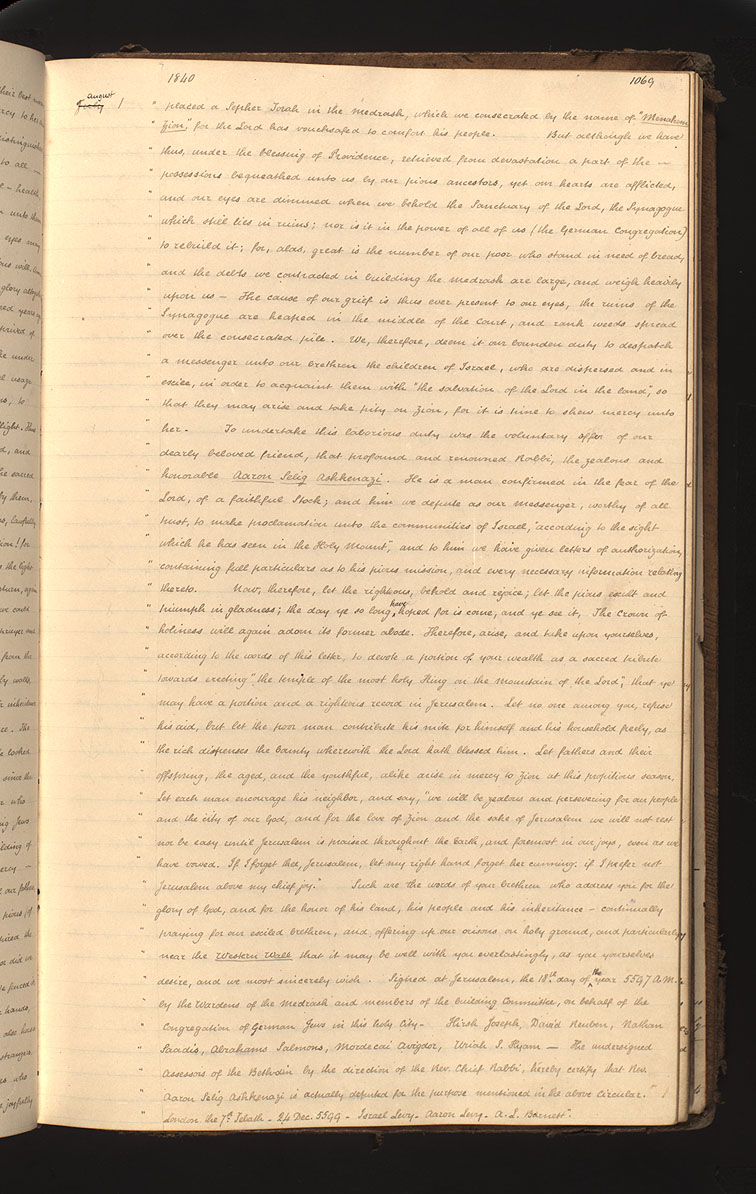 1840 1069
august
July 1 " placed a Sepher Torah in the Medrash, which we consecrated by the name of "Menahem
" Zion," for the Lord has vouchsafed to comfort his people. But although we have
" thus, under the blessing of Providence, retrieved from devastation a part of the —
" possessions bequeathed unto us by our pious ancestors, yet our hearts are afflicted,
" and our eyes are dimmed when we behold the Sanctuary of the Lord, the Synagogue
" which still lies in ruins; nor is it in the power of all of us (the German Congregation)
" to rebuild it; for, alas, great is the number of our poor who stand in need of bread,
" and the debts we contracted in building the Medrash are large, and weigh heavily
" upon us — The cause of our grief is thus ever present to our eyes, the ruins of the
" Synagogue are heaped in the middle of the Court, and rank weeds spread
" over the consecrated pile. We, therefore, deem it our bounden duty to despatch
" a messenger unto our brethren the children of Israel, who are dispersed and in
" excile, in order to acquaint them with "the salvation of the Lord in the land", so
" that they may arise and take pity on Zion, for it is time to shew mercy unto
" her. To undertake this laborious duty was the voluntary offer of our
" dearly beloved friend, that profound and renowned Rabbi, the zealous and
" honorable Aaron Selig Ashkenazi. He is a man confirmed in the fear of the
" Lord, of a faithful Stock; and him we depute as our messenger, worthy of all
" trust, to make proclamation unto the communities of Israel, "according to the sight
" which he has seen in the Holy Mount", and to him we have given letters of authorization,
" containing full particulars as to his pious mission, and every necessary information relating
" thereto. Now, therefore, let the righteous, behold and rejoice; let the pious exult and
" triumph in gladness; the day ye so long have hoped for is come, and ye see it, The Crown of
" holiness will again adorn its former abode. Therefore, arise, and take upon yourselves,
" according to the words of this letter, to devote a portion of your wealth as a sacred tribute
" towards erecting "the temple of the most holy King on the Mountain of the Lord", that ye
" may have a portion and a righteous record in Jerusalem. Let no one among you, refuse
" his aid, but let the poor man contribute his mite for himself and his household freely, as
" the rich dispenses the bounty wherewith the Lord hath blessed him. Let fathers and their
" offspring, the aged, and the youthful, alike arise in mercy to Zion at this propitious season.
" Let each man encourage his neighbor, and say, "we will be zealous and persevering for our people
" and the city of our God, and for the love of Zion and the sake of Jerusalem we will not rest
" nor be easy until Jerusalem is praised throughout the Earth, and foremost in our joys, even as we
" have vowed. If I forget thee, Jerusalem, let my right hand forget her cunning: if I prefer not
" Jerusalem above my chief joy." Such are the words of your brethren who address you for the
" glory of God, and for the honor of his land, his people and his inheritance — continually
" praying for our exiled brethren, and offering up our orisons on holy ground, and particularly
" near the Western Wall that it may be well with you everlastingly, as you yourselves
" desire, and we most sincerely wish. Signed at Jerusalem, the 18th day of the year 5597 A.M.
" by the Wardens of the Medrash and members of the building Committee, on behalf of the
" Congregation of German Jews in this holy City — Hirsh Joseph, David Reuben, Nathan
" Saadis, Abrahams Salmons, Mordecai Avigdor, Uriah S. Hyam — The undersigned
" Assessors of the Bethdin by the direction of the Rev. Chief Rabbi, hereby certify that Rev.
" Aaron Selig Ashkenazi is actually deputed for the purpose mentioned in the above Circular."
" London the 7th Tebath — 24 Dec. 5599 — Israel Levy — Aaron Levy — A. L. Barnett".